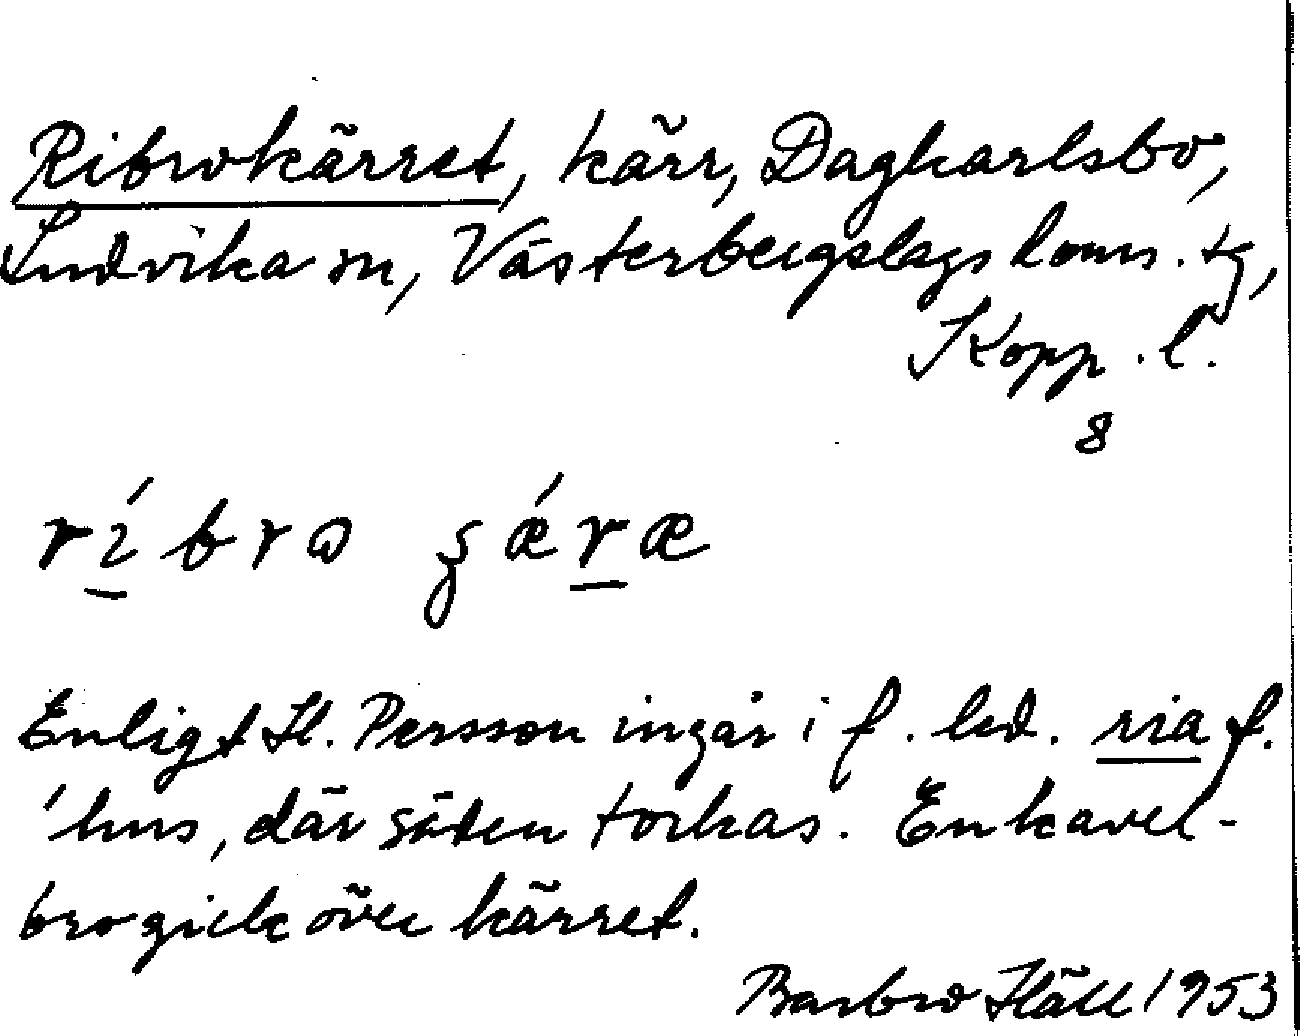 Ribrokärret, kärr, Dagkarlsbo,
Ludvika sn, Västerbergslags doms. tg,
Kopp. l.
8
ríbro ʂǽræ
Enligt H. Persson ingår i f. led. ria f.
'hus, där säden torkas. En kavel-
bro gick över kärret.
Barbro Häll 1953